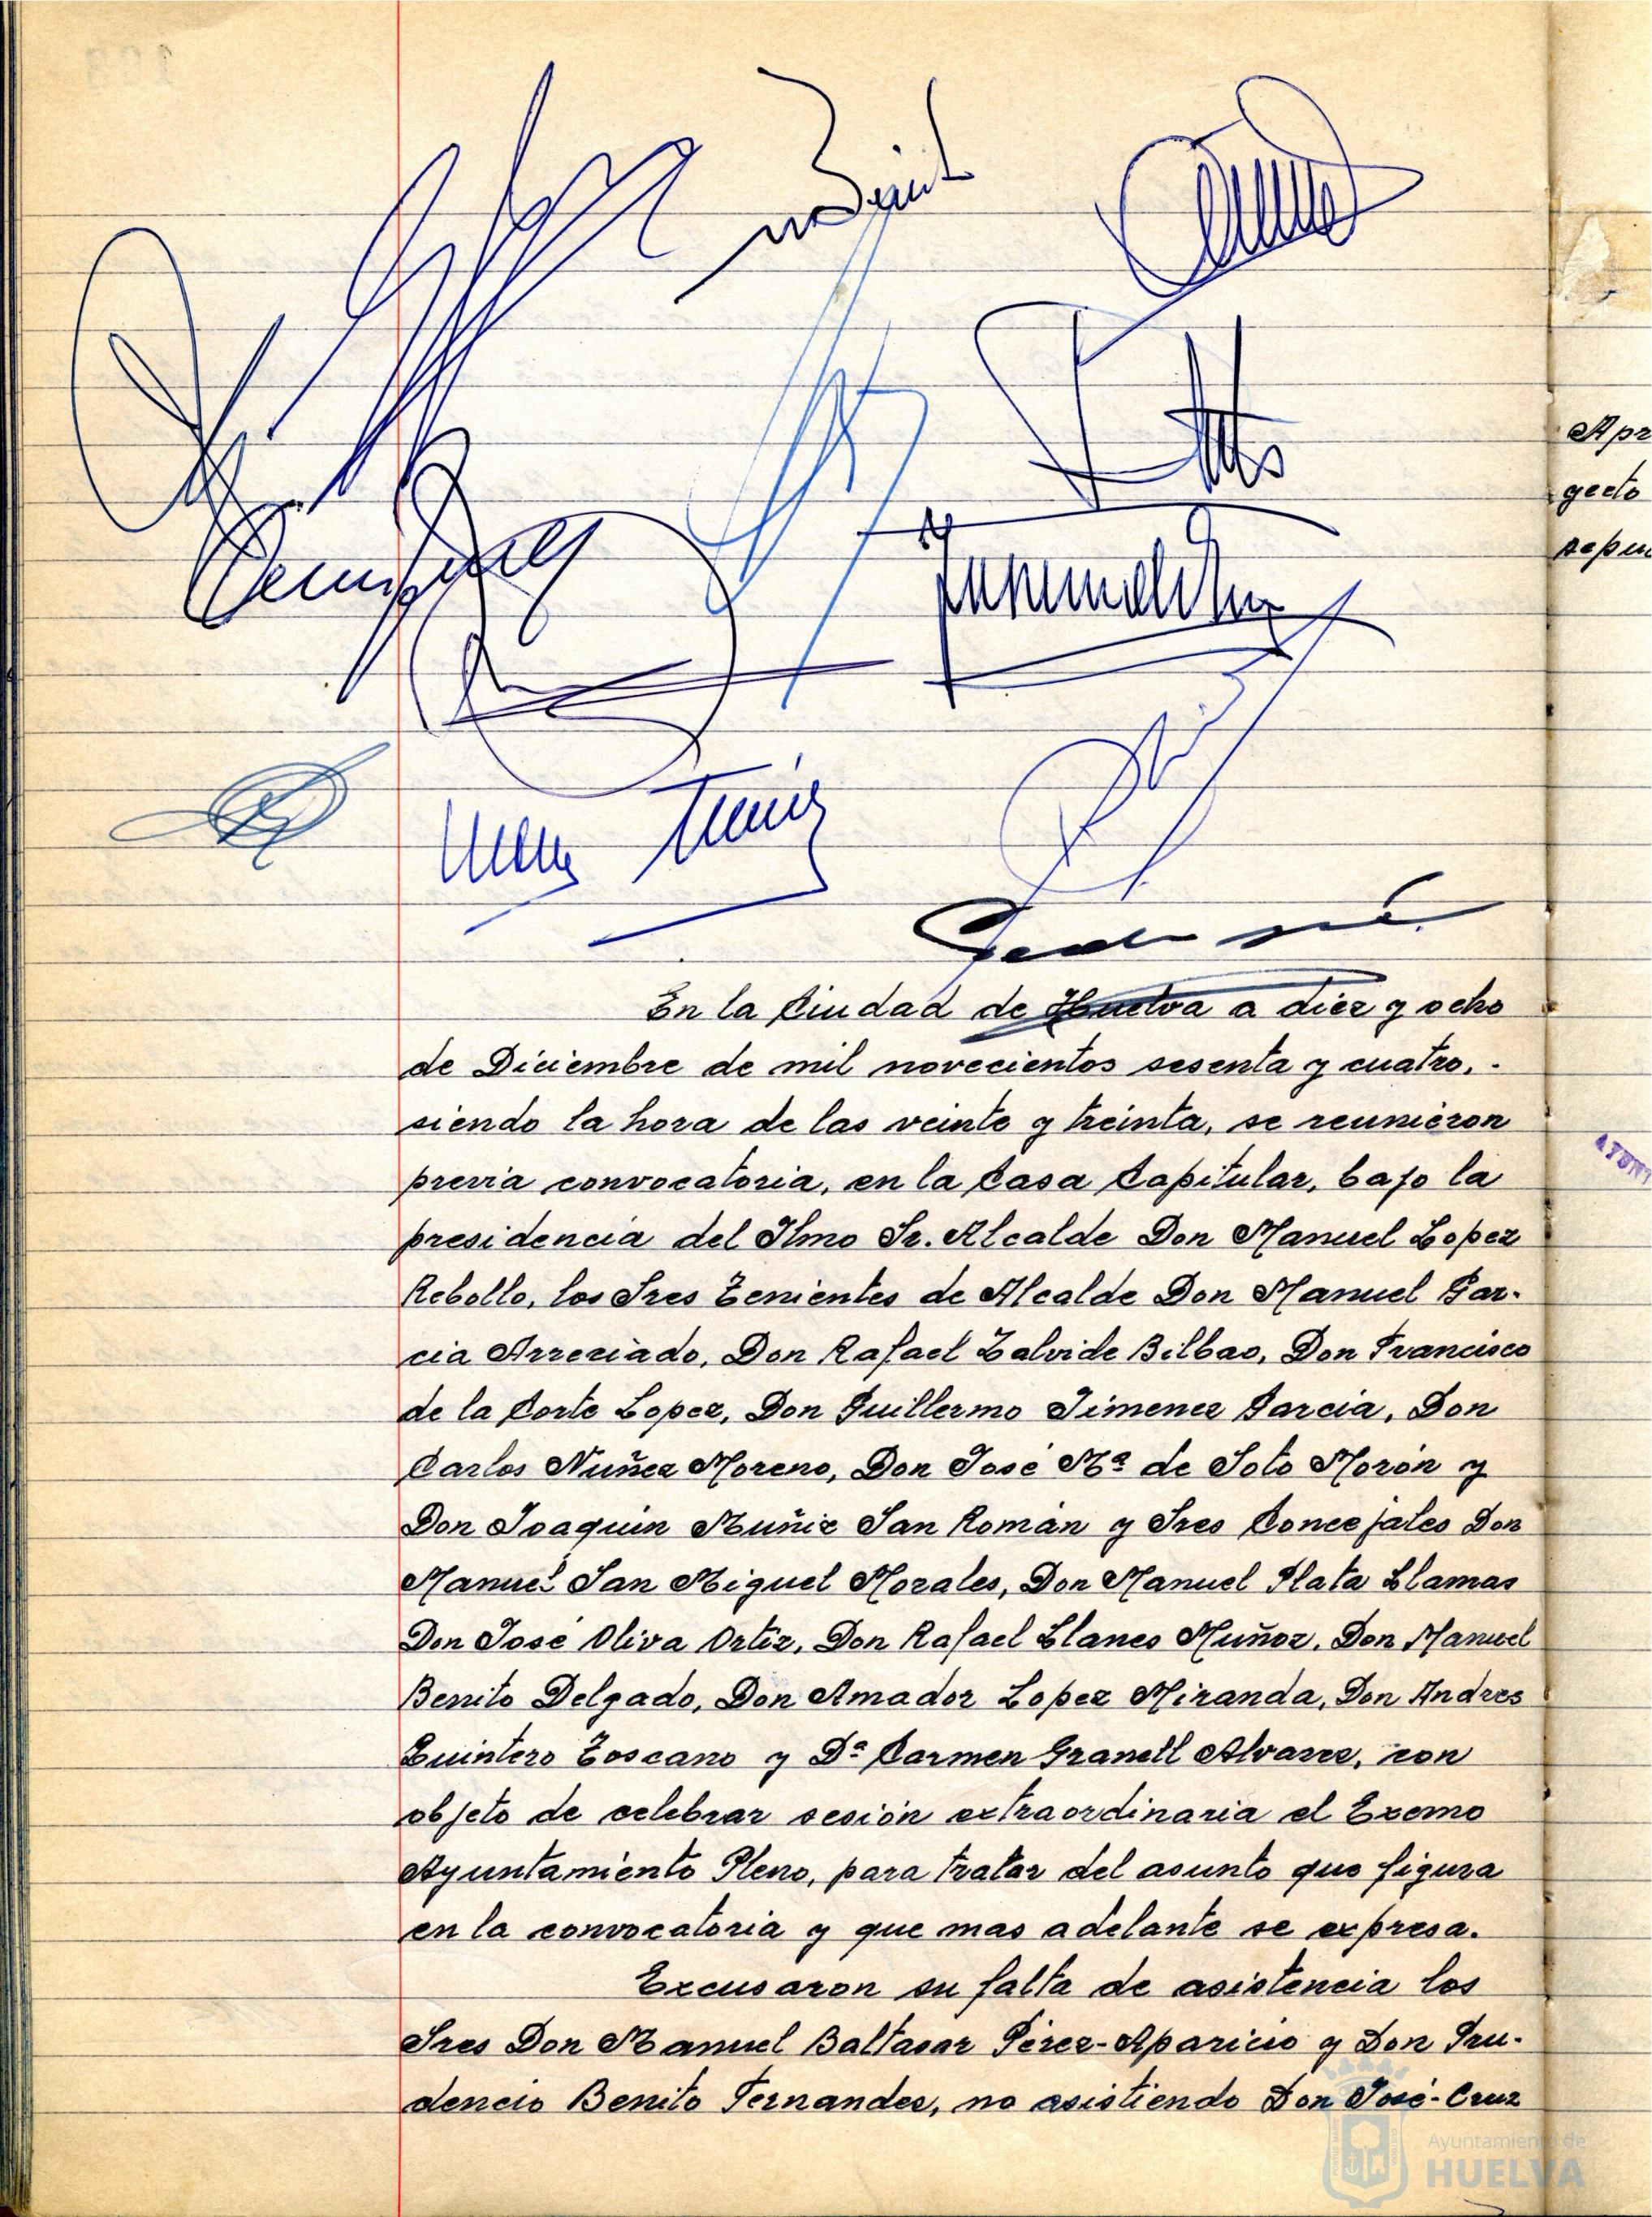 En la Ciudad de Huelva a diez y ocho
de Diciembre de mil novecientos sesenta y cuatro, -
siendo la hora de las veinte y treinta, se reunieron
previa convocatoria, en la Casa Capitular, bajo la
presidencia del Ilmo Sr. Alcalde Don Manuel Lopez
Rebollo, los Sres Tenientes de Alcalde Don Manuel Gar-
cia Arreciado, Don Rafael Zalvide Bilbao, Don Francisco
de la Corte Lopez, Don Guillermo Jimenez Garcia, Don
Carlos Nuñez Moreno, Don José Mª de Soto Morón y
Don Joaquin Muñiz San Román y Sres Concejales Don
Manuel San Miguel Morales, Don Manuel Plata Llamas
Don José Oliva Ortiz, Don Rafael Llanes Muñoz, Don Manuel
Benito Delgado, Don Amador Lopez Miranda, Don Andres
Quintero Toscano y Dª Carmen Granell Alvarez, con
objeto de celebrar sesión extraordinaria el Excmo
Ayuntamiento Pleno, para tratar del asunto que figura
en la convocatoria y que mas adelante se expresa.
Excusaron su falta de asistencia los
Sres Don Manuel Baltasar Pérez-Aparicio y Don Pru-
dencio Benito Fernandez, no asistiendo Don José-Cruz
Apr
gecto
sepu
AYUNT
Ayuntamiento de
HUELVA